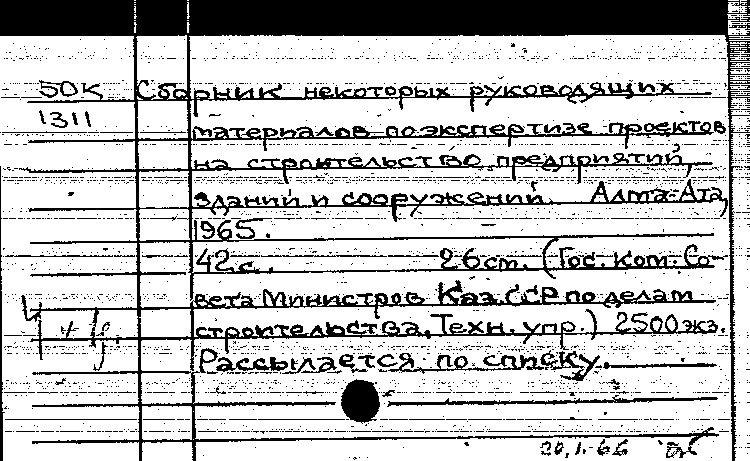 50К Сборник некоторых руководящих
1311
материалов по экспертизе проектов
на строительство предприятий,
зданий и сооружений. Алма-Ата,
1965.
42с. 26 cm. (Гос. ком. Со-
вета Министров Каз.ССР по делам
строительства. Техн. упр.) 2500 экз.
Рассылается по списку.
20.1.66